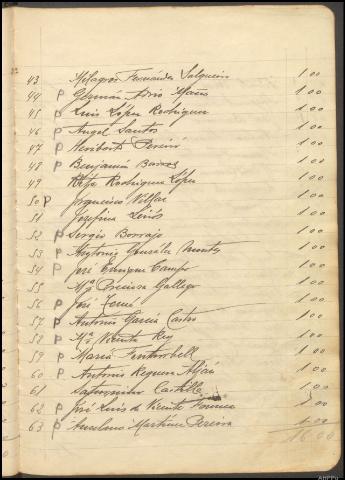 43 Milagros Fernández Salgueiro 1.00
44 P Germán Adrio Mañá 1.00
45 P Luis López Rodríguez 1.00
46 P Angel Santos 1.00
47 P Heriberto Pereiró 1.00
48 P Benjamín Barros 1.00
49 Rafa Rodríguez López 1.00
50 P Villar 1.00
51 Josefina 1.00
52 P Sergio Borrajo 1.00
53 P Antonio González Montes 1.00
54 P José Enrique Campo 1.00
55 Mª Preciosa Gallego 1.00
56 P José 1.00
57 P Antonio García Castro 1.00
58 P Mª Vicenta Rey 1.00
59 P María 1.00
60 P Antonio 1.00
61 Saturnino Castilla 1.00
62 P José Luis de Vicente 1.00
63 P Anselmo Martínez Pereira 1.00